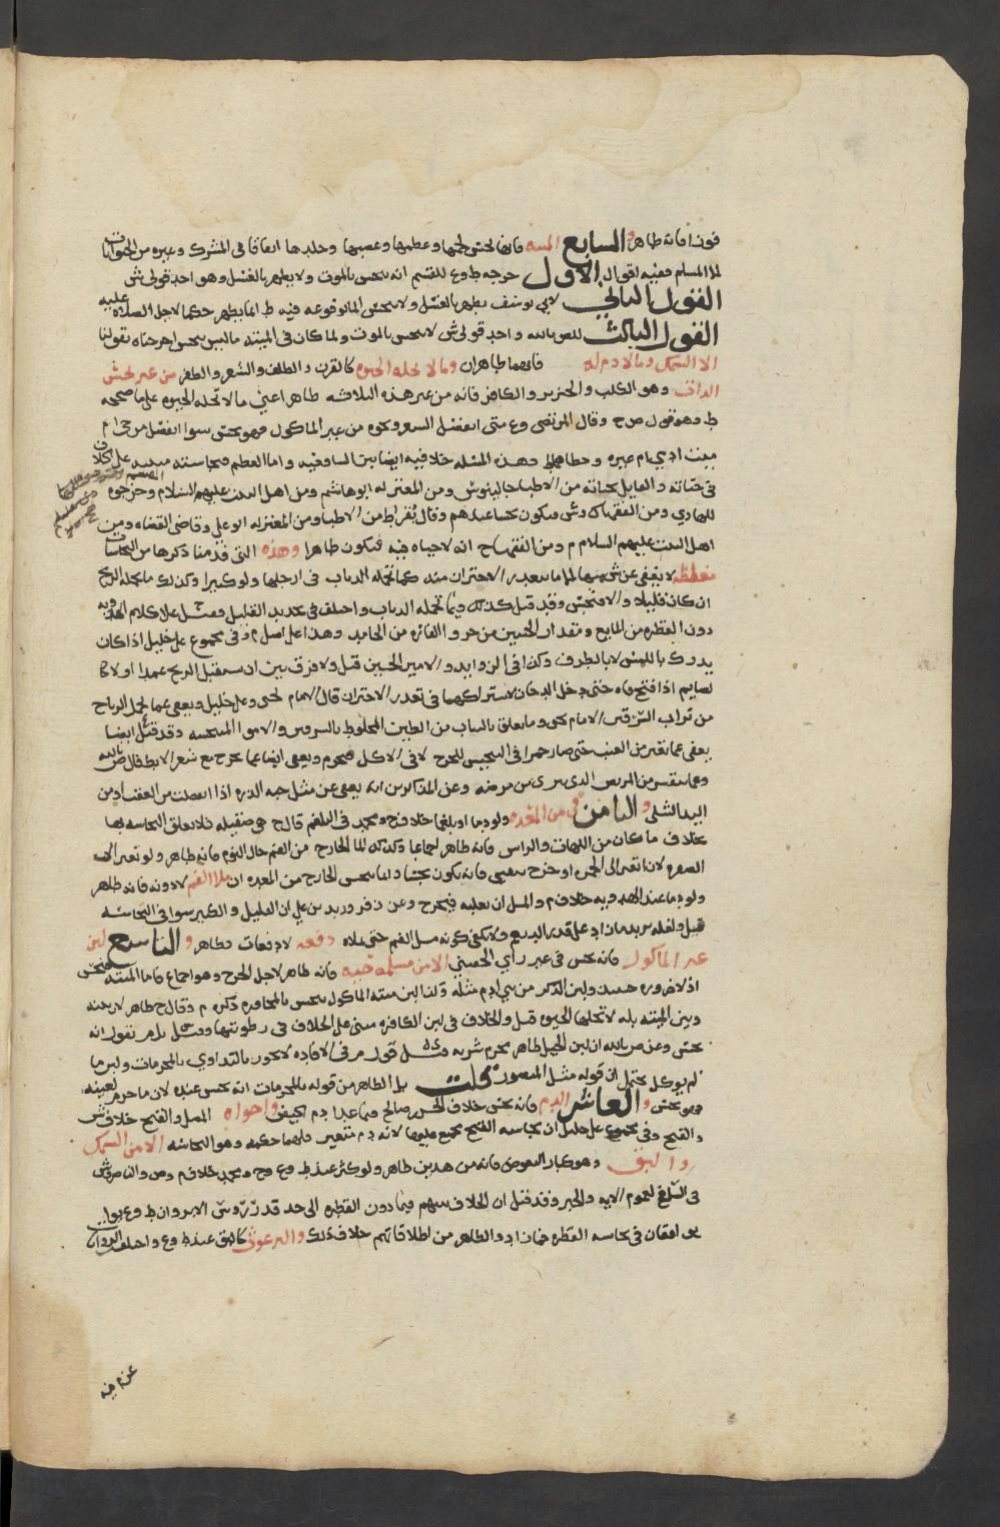 فانه طاهر والسابع الميتة فانها نجس لحمها وعظمها وعصبها وجلدها اتفاقا في المشرك وغيره من الحيوانات
اما المسلم ففيه اقوال الاول خرجه ط وع للقسم انه ينجس بالموت ولا يطهر بالغسل وهو احد قولي ش
القول الثاني لابي يوسف يطهر بالغسل ولا ينجس الماء بوقوعه فيه ط انما يطهر حكما لاجل الصلاة عليه
القول الثالث للص بالله واحد قولي ش لا ينجس بالموت ولما كان في الميتة ما ليس بنجس اخرجناه بقولنا
الا السمك وما لا دم له فانهما طاهران وما لا تحله الحيوة كالقرن والظلف والشعر والظفر من غير نجس
الذات وهو الكلب والخنزير والكافر فانه من غير هذه الثلاثة طاهر اعني ما لا تحله الحيوة على ما صححه
ط وهو قول ص ح وقال المرتضى وع متى انفصل الشعر ونحوه من غير الماكول فهو نجس سوا انفصل من حي ام
ميت ادمي ام غيره وهذه المسئلة خلافية ايضا بين السا وفيه واما العظم فنجاسته
في حياته والقايل بحياته من الاطباء جالينوس ومن المعتزلة ابو هاشم ومن اهل البيت عليهم السلام وخرجوه
للهادي ومن الفقهاء ك وش فيكون نجسا عندهم وقال بقراط من الاطبا ومن المعتزلة ابو علي وقاضي القضاة ومن
اهل البيت عليهم السلام م ومن الفقهاء ح انه لا حياة فيه فيكون طاهرا وهذه التي قدمنا ذكرها من النجاسات
مغلظة لا يعفى عن شي منها الا ما يتعذر الاحتراز منه كما تحمله الذباب في ارجلها ولو كثيرا وكذلك ما تحمله الريح
ان كان قليلا والا فنجس وقد قيل كذلك فيما تحمله الذباب واختلف في تحديد القليل فقيل على كلام الهادوية
دون القطرة من المايع ومقدار الحبتين من خرو الفارة من الجامد وهذا على اصل م وفي مجموع علي خليل اذا كان
يدرك باللمس لا بالطرف وكذا في الزوايد والامير الحسين قيل ولا فرق بين ان يستقبل الريح عمدا او لا كا
لصايم اذا فتح فاه حتى دخل الدخان لاشتراكهما في تعذر الاحتراز قال الامام يحيى وعلي خليل ويعفى عما تحمل الرياح
من تراب السرقين الامام يحيى وما يعلق بالثياب من الطين المخلوط بالسرقين والامواه المتنجسة وقد قيل ايضا
يعفى عما تغير من العنب حتى صار خمرا في التنجيس للحرج لا في الاكل فمحرم ويعفى ايضا عما يخرج مع شعر الابط قال ص بالله
وعما يتقشر من المريض الذي يبرى من مرضه وعن المذاكرين انه يعفى عن مثل حبة الذرة اذا انفصلت من العقب او من
اليد الشلى والثامن قي من المعدة ولو دما او بلغما خلاف ح ومحمد في البلغم قال ح هي صقيلة فلا تعلق النجاسة بها
بخلاف ما كان من اللهات والراس فانه طاهر اجماعا وكذلك الما الخارج من الفم حال النوم فانه طاهر ولو تغير الى
الصفرة لا ان تغير الى الحمرة او خرج بقي فانه يكون نجسا وانما ينجس الخارج من المعدة ان ملا الفم لا دونه فانه طاهر
ولو دما عند وفيه خلاف م والمل ان يغلبه فيخرج وعن زفر وزيد بن علي ان القليل والكثير سوا في النجاسة
على قدر الدسع ولا يكفي كونه ملء الفم حتى ملاه دفعة لا دفعات فطاهر والتاسع لبن
غير الماكول فانه نجس في غير راي الحسني الا من مسلمة حية فانه طاهر لاجل الحرج وهو اجماع فاما الميتة فنجس
اذ لا ضرورة حينئذ ولبن الذكر من بني ادم مثله ولنا لبن ميتة الماكول ينجس بالمجاورة ذكره م وقال ح طاهر لان بينه
وبين الميتة بله لا تحلها الحيوة قيل والخلاف في لبن الكافرة مبني على الخلاف في رطوبتها وقيل بل م يقول انه
نجس وعن ص بالله ان لبن الخيل طاهر يحرم شربه قيل قول م في الافادة لا يجوز التداوي بالمحرمات ولبن ما
لم يوكل يحتمل ان قوله مثل المنصور قلت بل الظاهر من قوله بالمحرمات انه نجس عنده لان ما حرم لعينه
فهو نجس والعاشر الدم فانه نجس خلاف الحسن بن صالح فيما عدا دم الحيض واخواه المصل والقيح خلاف ش
والقيح وفي مجموع علي خليل ان نجاسة القيح مجمع عليها لانه دم متغير فلهما حكمه وهو النجاسة الا من السمك
والبق وهو كبار البعوض فانه من هذين طاهر ولو كثر عند ط وع وح ومحمد خلاف م وص والناصر وش
في السايغ لعموم الاية والخبر وقد قيل ان الخلاف بينهم فيما دون القطرة الى حد قدر روس الابر وان ط وع
يوافقان في نجاسة القطرة فما زاد والظاهر من اطلاقاتهم خلاف ذلك والبرغوث كالبق عند ط وع واختلف الرواة
عنهم فيه